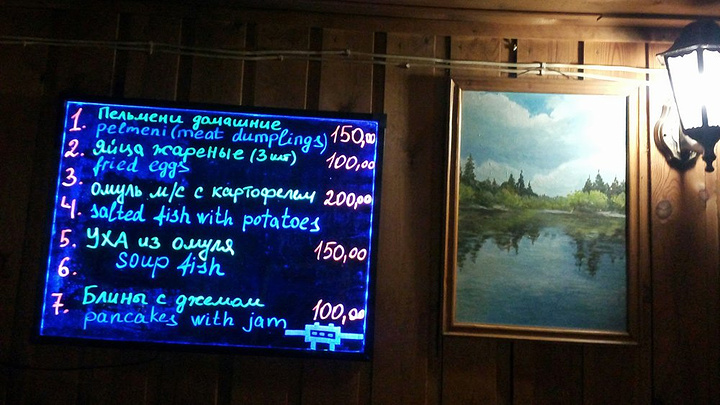 1. Пельмени домашние
pelmeni (meat dumplings) 150,00
2. Яйца жареные (3 шт) 100,00
fried eggs
3.
омуль м/с с картофелем 200,00
4. salted fish with potatoes
5. УХА из омуля 150,00
6. soup fish
7. Блины с джемом 100,00
pancakes with jam